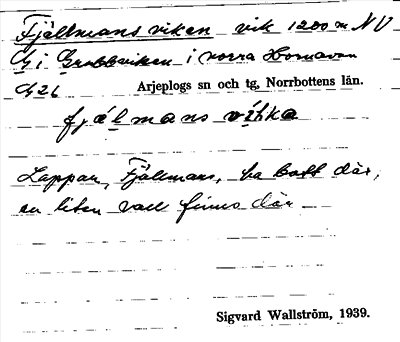 Fjällmansviken vik 1200 m NV
G i Grubbviken i norra Hornavan
G26 Arjeplogs sn och tg, Norrbottens län.
fjälmansvika
Lappar, Fjällmans, ha bott där,
en liten vall finns där
Sigvard Wallström, 1939.